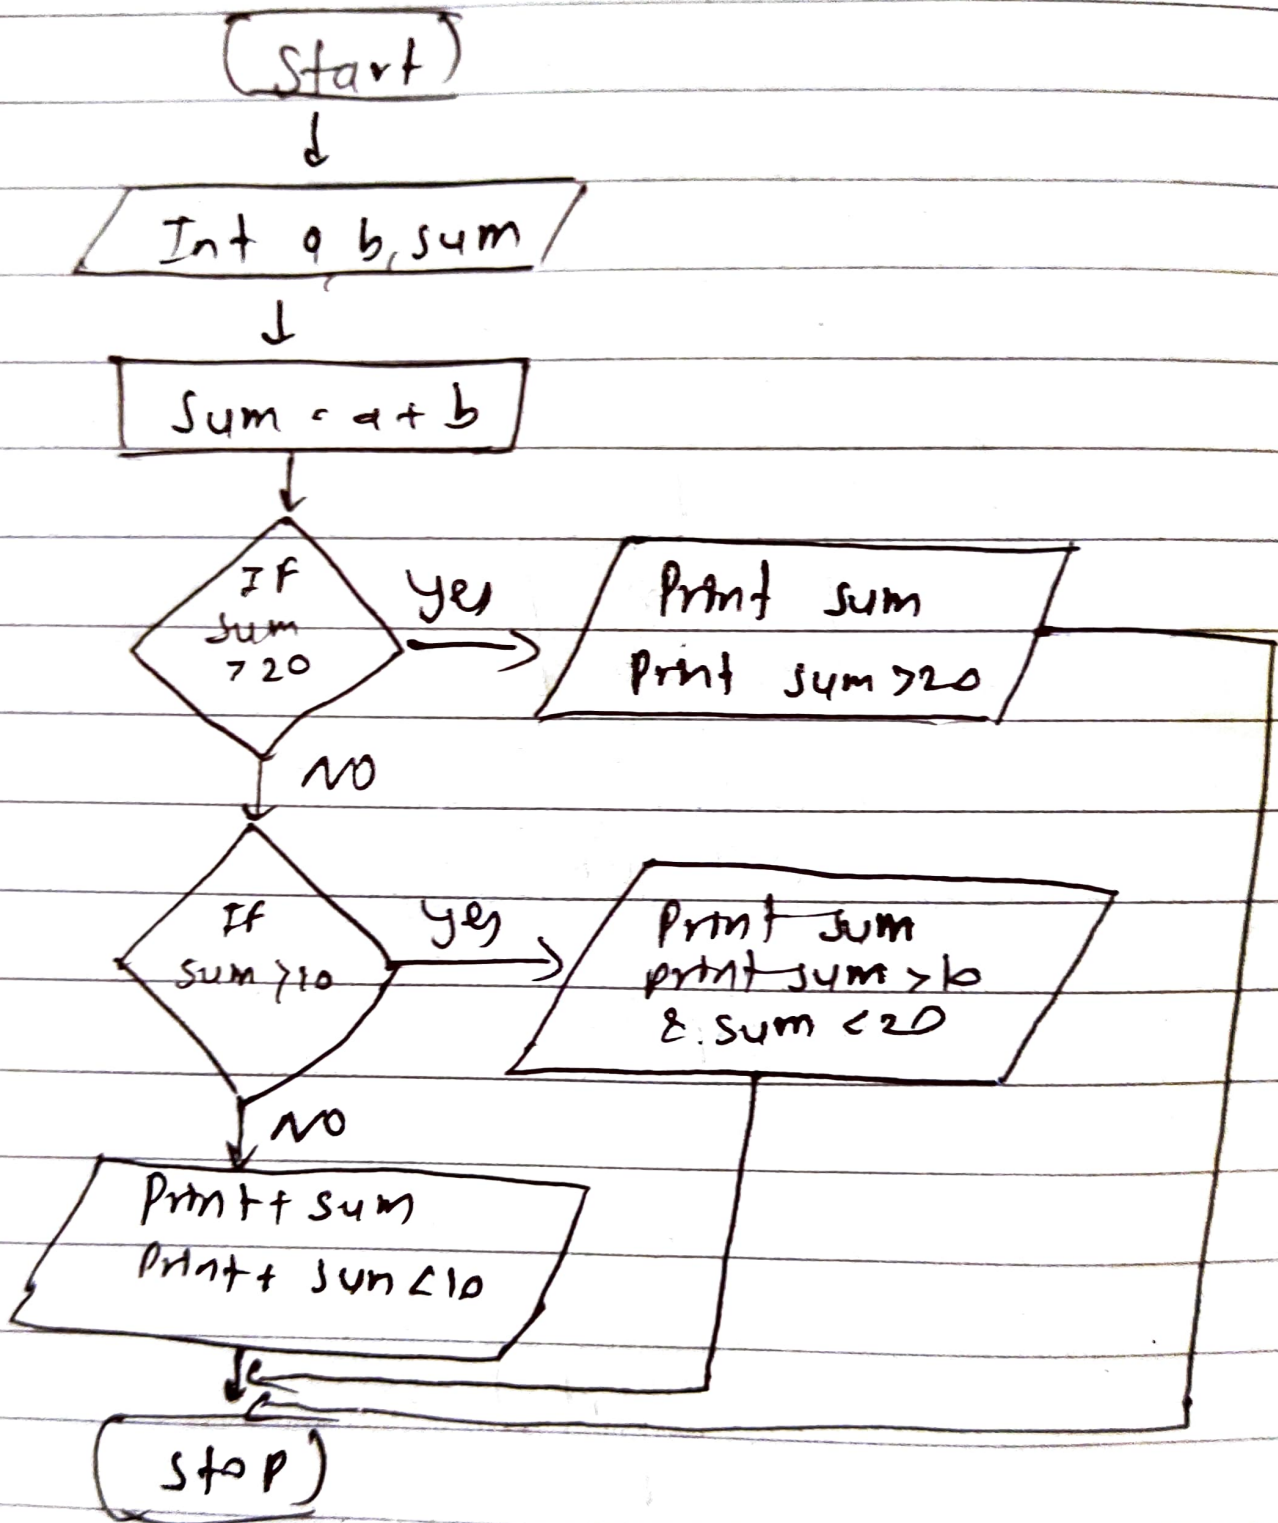 Start
Int a b, sum
Sum = a + b
If
sum
>20
yes
Print sum
Print sum >20
NO
If
sum >10
yes
Print sum
print sum > 10
& sum < 20
NO
Printt sum
Printt sum < 10
Stop